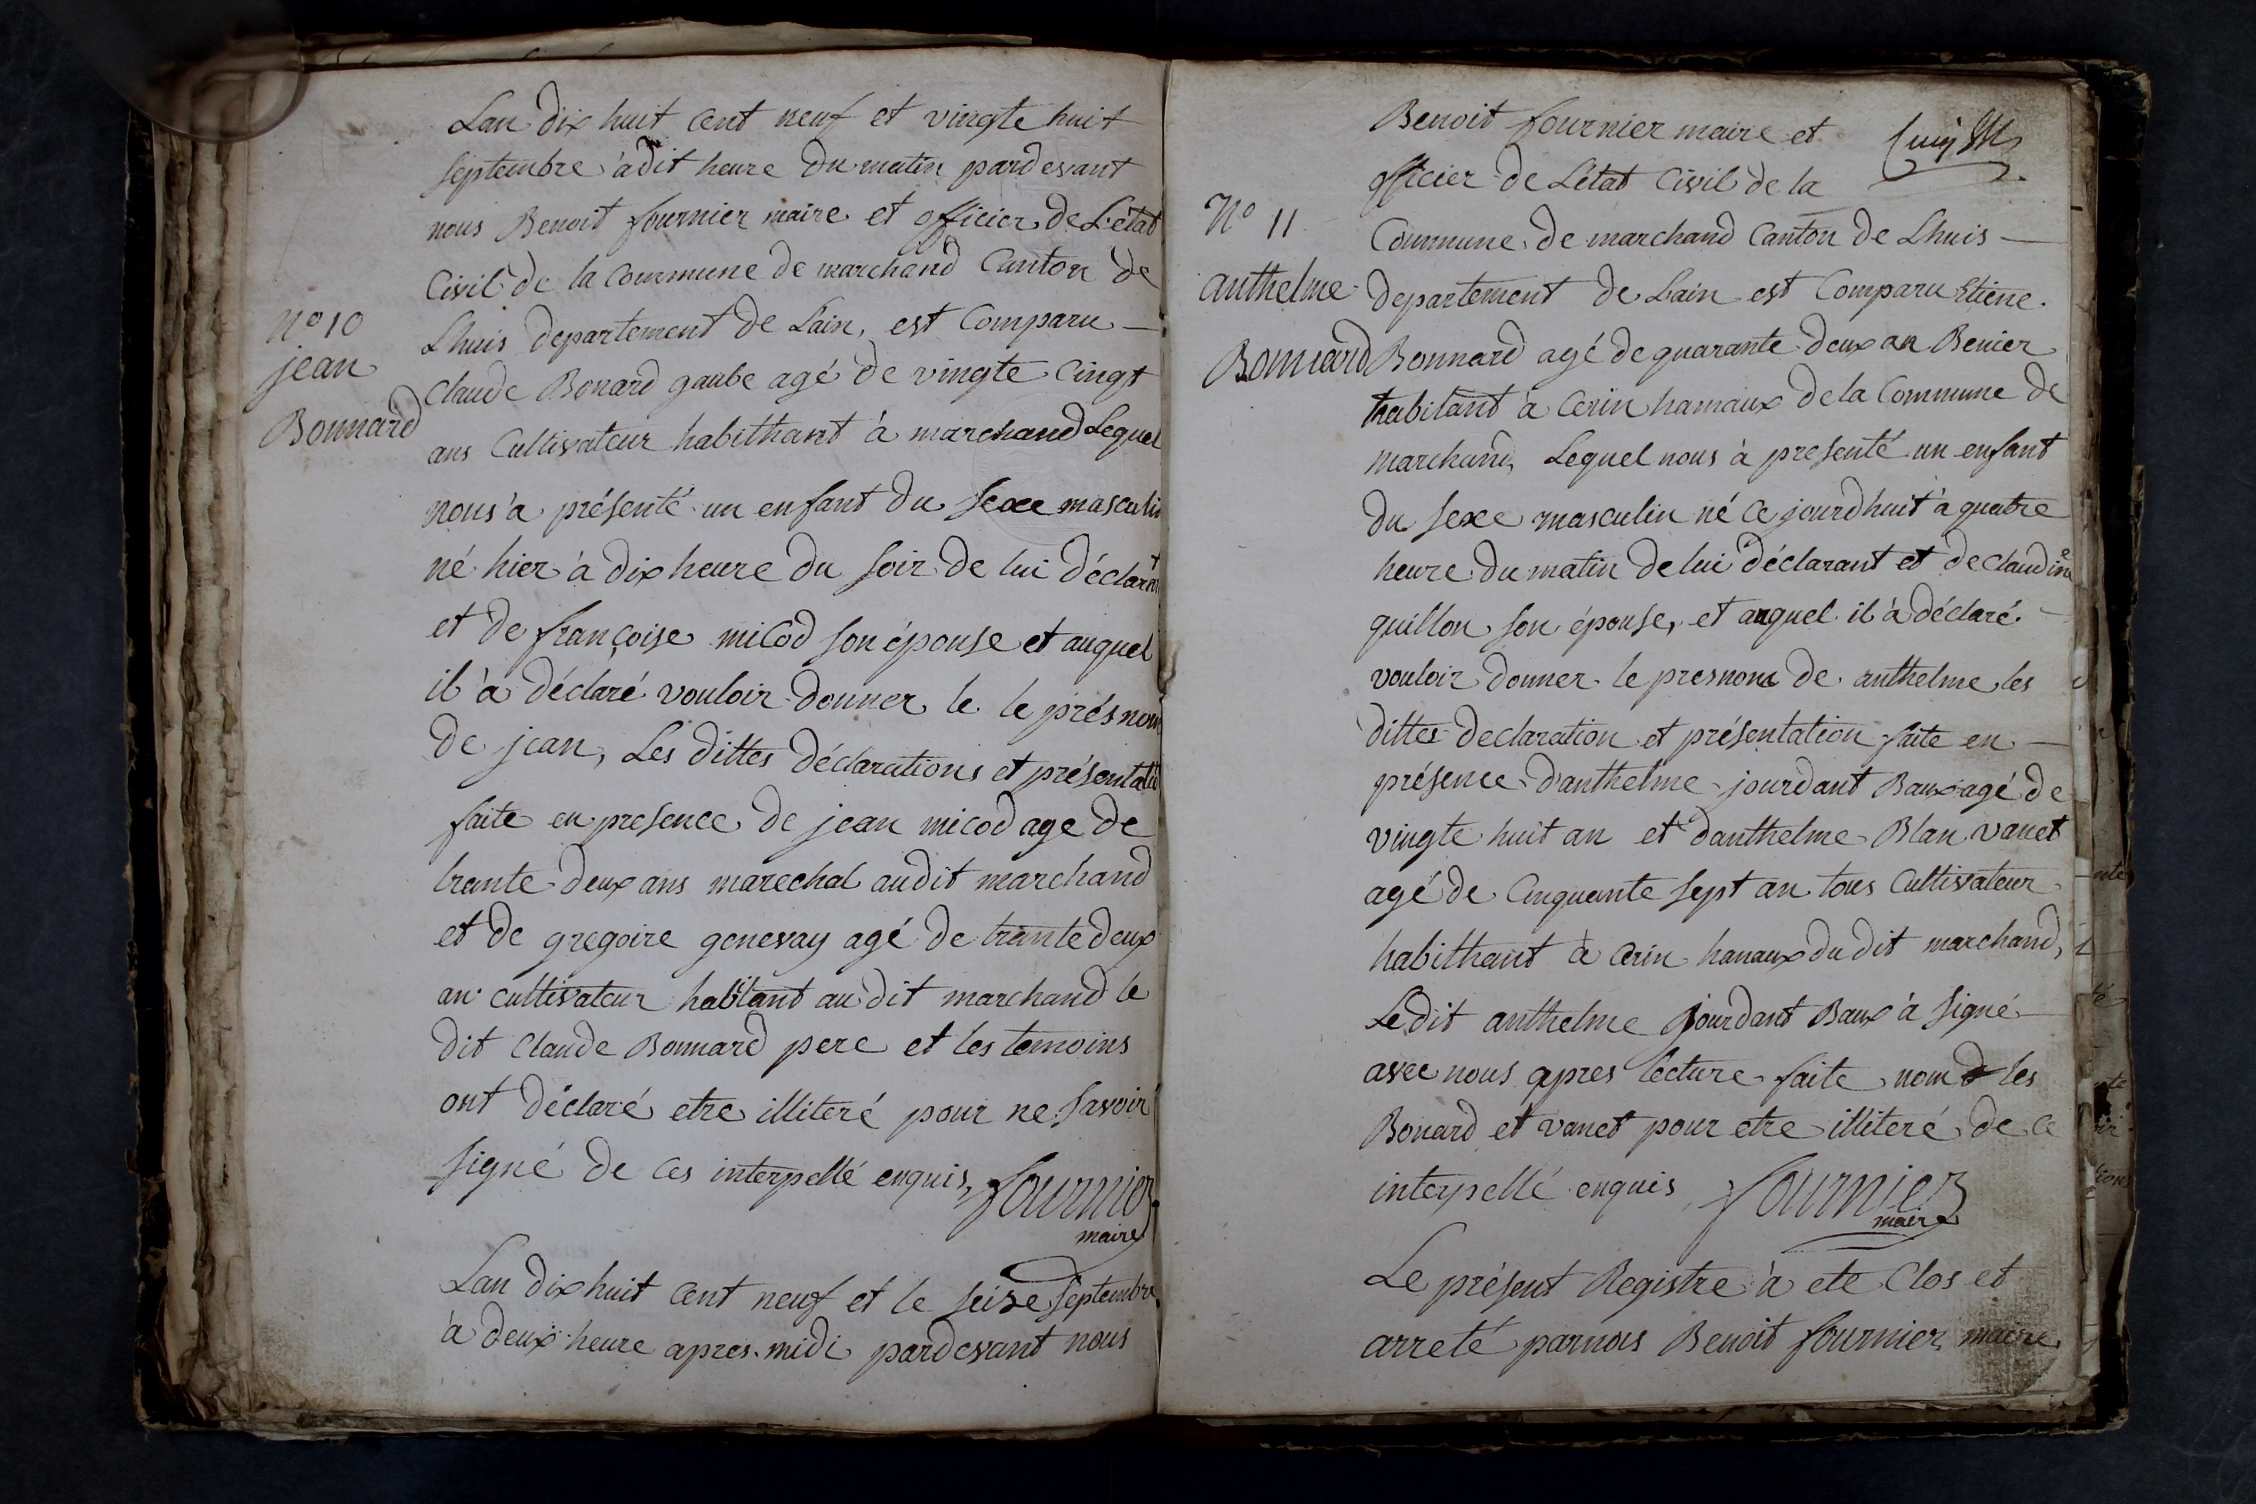 Lan dix huit cent neuf et vingte huit
septembre à dit heure du matin pardevant
nous Benoit fournier maire et officier de Létat
Civil de la Commune de marchand Canton de
Lhuis departement de Lain, est Comparu
N° 10
jean
Bonnard
Claude Bonard gaube agé de vingte cingt
ans Cultivateur habithant à marchand Lequel
nous à présenté un enfant du sexe masculin
né hier à dix heure du soir de lui déclarnt
et de françoise micod son épouse et auquel
il à déclaré vouloir donner le le présnom
de jean, Les dittes déclarations et présentatio
faite en presence de jean micod age de
trente deux ans marechal audit marchand
et de gregoire genevay agé de trante deux
an cultivateur habitant au dit marchand le
dit Claude Bonnard pere et les temoins
ont déclaré etre illiteré pour ne savoir
signé de ces interpellé enquis, fournier
maire
Lan dix huit cent neuf et le seize septembre
à deux heure apres midi pardevant nous
Benoit fournier maire et
officier de Létat Civil de la
N° 11
anthelme
Bonnard
Commune de marchand Canton de Lhuis
departement de Lain est Comparu Etiene
Bonnard agé de quarante deux an Benier
habitant à Cerin hamaux de la Commune de
marchand, Lequel nous à presenté un enfant
du sexe masculin né ce jourdhuit à quatre
heure du matin de lui déclarant et de Claudine
quillon son épouse, et auquel il à déclaré
vouloir donner le presnom de anthelme les
dittes declaration et présentation faite en
présence d'anthelme jourdant Baux agé de
vingte huit an et danthelme Blan vanet
agé de Cinquante sept an tous Cultivateur
habithant à Cerin hanaux du dit marchand,
Ledit anthelme jourdant Baux à signé
avec nous apres lecture faite nom les
Bonard et vanet pour etre illiteré de ce
interpellé enquis, fournier
maire
Le présent Registre à ete Clos et
arreté parnous Benoit fournier maire